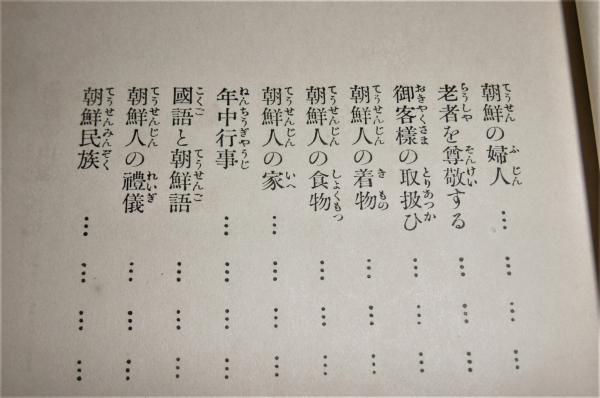 朝鮮の婦人…………
老者を尊敬する…………
御客樣の取扱ひ…………
朝鮮人の着物…………
朝鮮人の食物…………
朝鮮人の家…………
年中行事…………
國語と朝鮮語…………
朝鮮人の禮儀…………
朝鮮民族…………